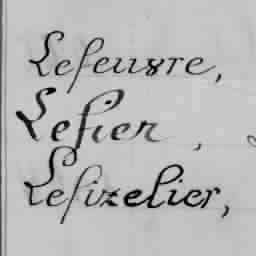 Lefeuvre,
Lefier,
Lefizelier,